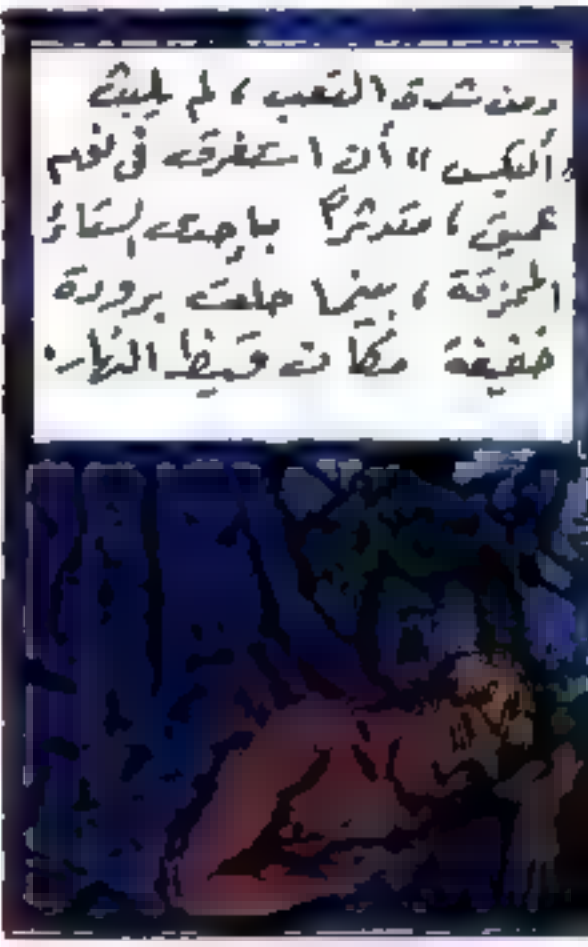 ومن شدة التعب، لم يلبث
«ألكس» أن استغرق في نوم
عميق، متدثراً بإحدى الستائر
الممزقة، بينما حلت برودة
خفيفة مكان قيظ النهار.